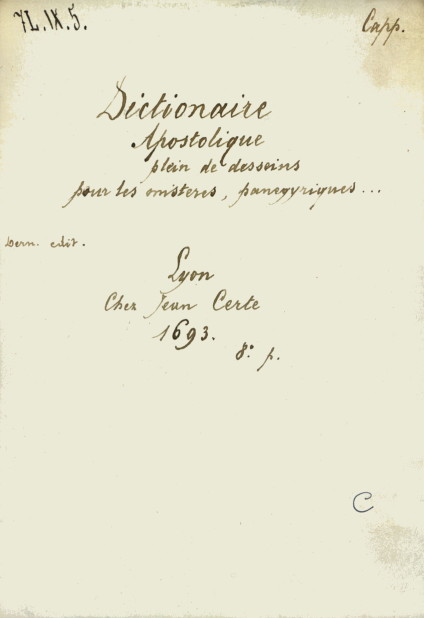 7L.IX.5.
Capp.
Dictionaire
Apostolique
plein de desseins
pour les misteres, panegyriques...
Dern. edit.
Lyon
Chez Jean Certe
1693.
8.° p.
C